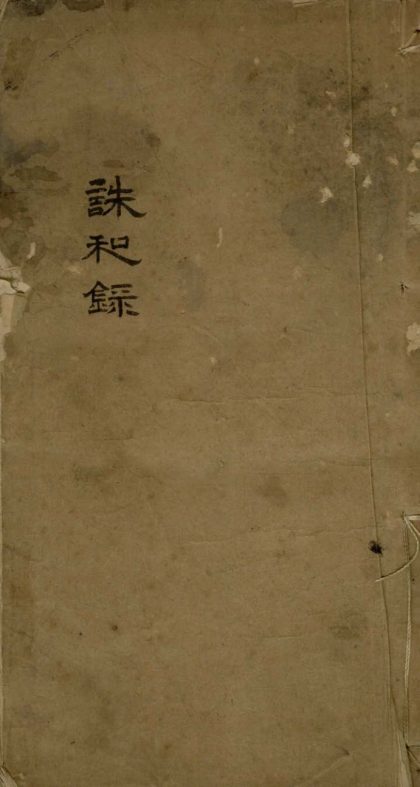 誅和錄